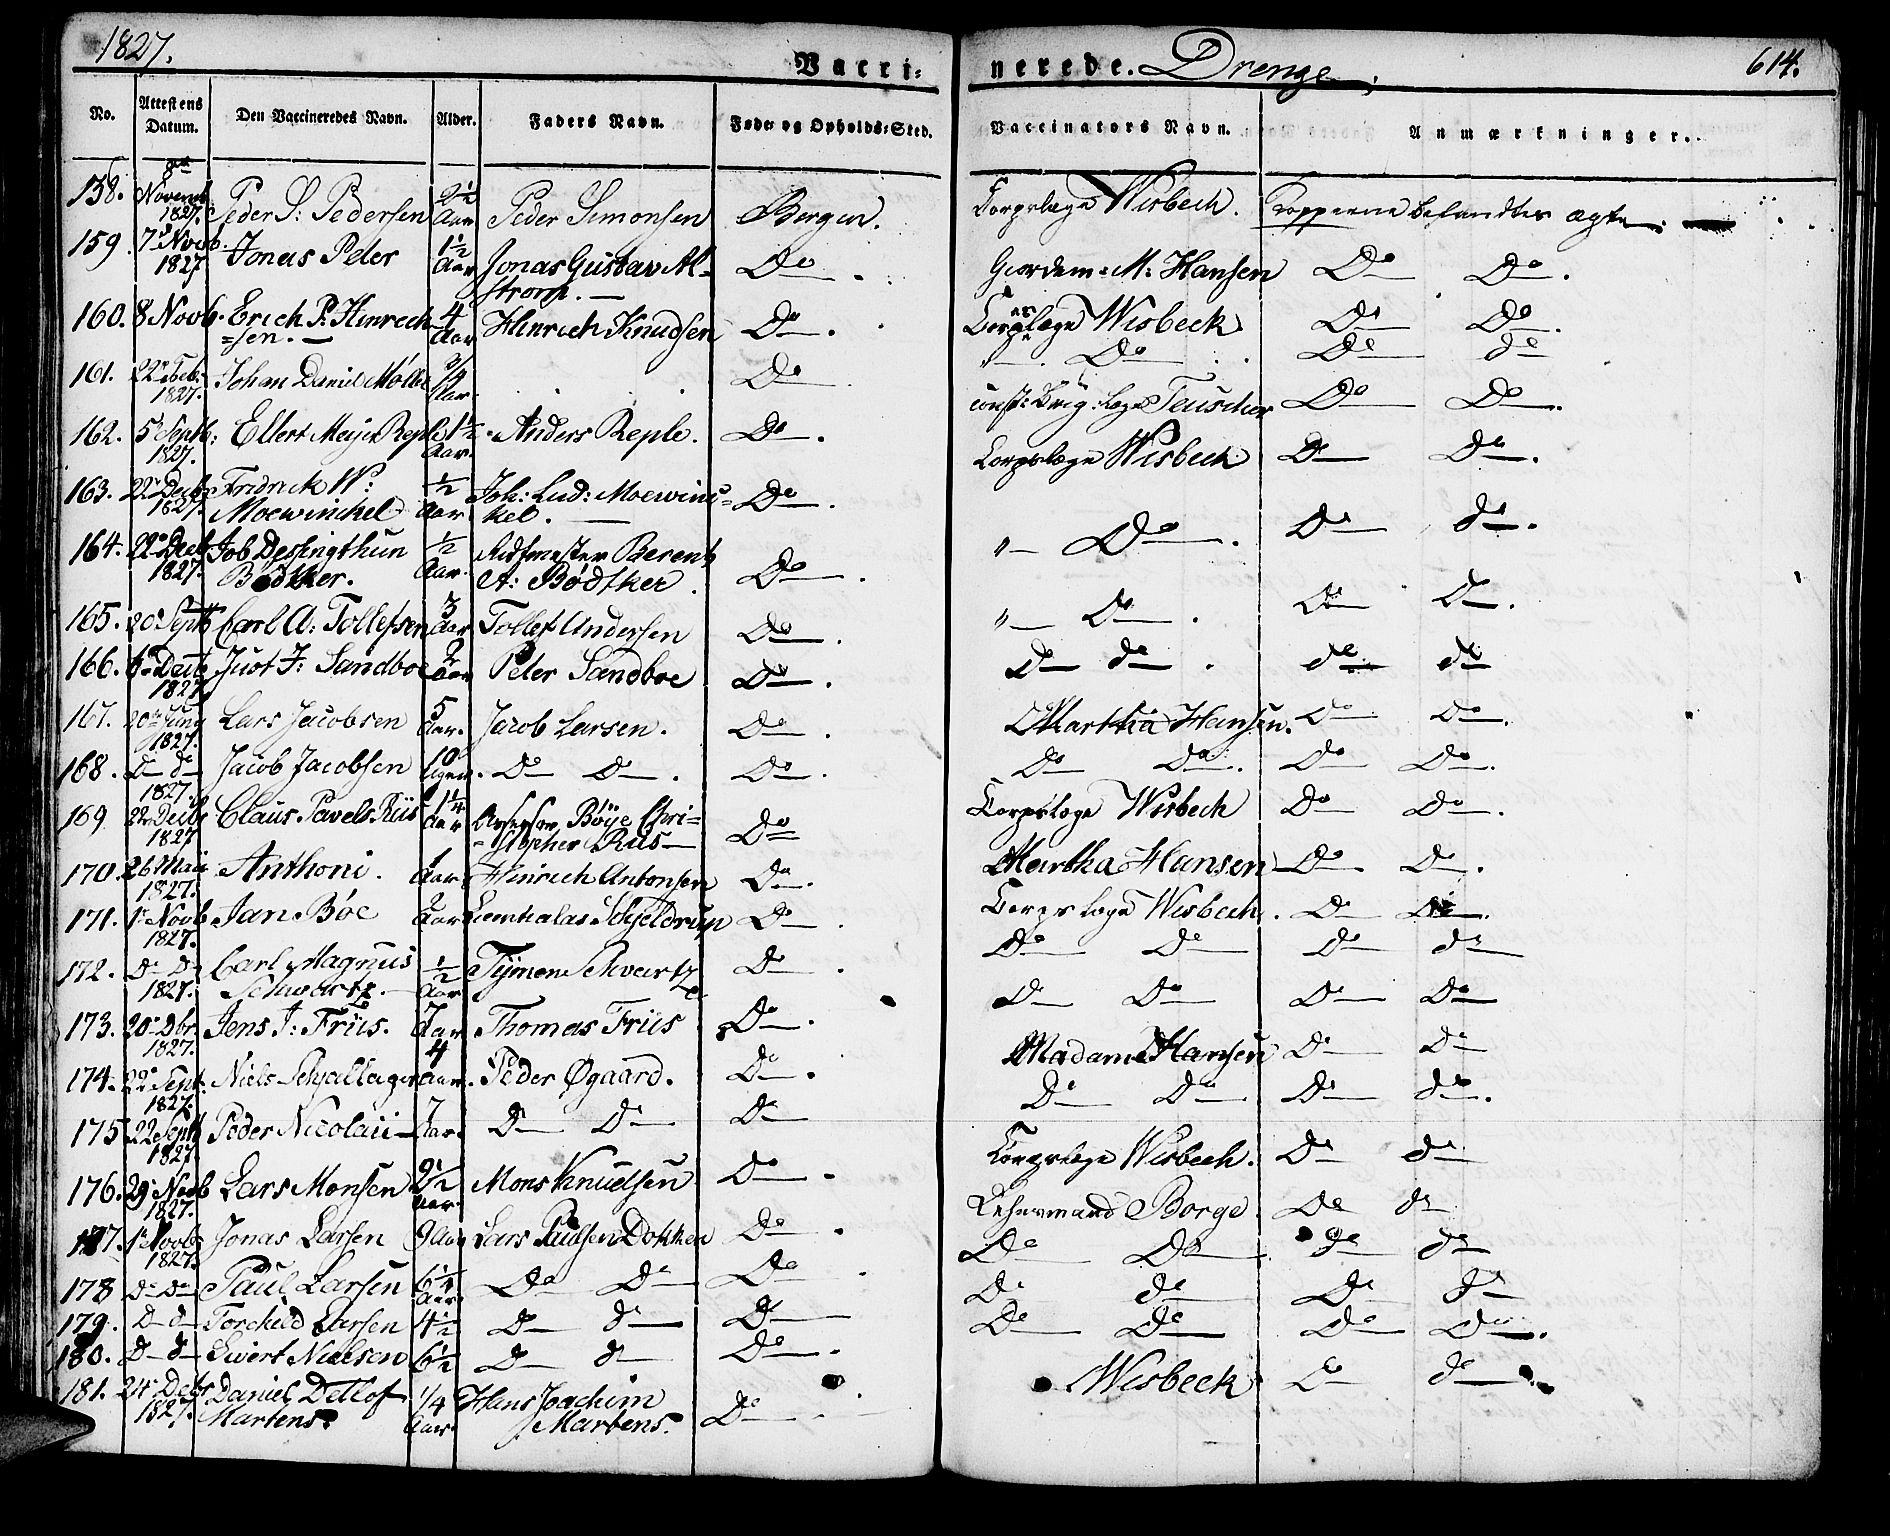 1827.
Vacci=
nerede. Drenge.
614.
No.
Attestens Datum.
Den Vaccineredes Navn.
Alder.
Faders Navn.
Føde og Opholds=Sted.
Vaccinators Navn.
Anmærkninger.
158. 8de Novemb 1827. Peder S: Pedersen 2½ Aar Peder Simonsen Bergen. Corpslæge Wisbech. Kopperne befandtes ægte.
159. 7 Novb. 1827 Jonas Peter 1½ Aar Jonas Gustav Al=
strom. Do Giordem: M: Hansen Do Do.
160. 8 Novb. Erich P: Hinrich
=sen. 4 Aar Hinrich Knudsen Do. Corpslæge Wisbeck Do Do.
161. 22 Feb. 1827. Johan Daniel Møller 3/4 Aar. Do " Do Do de
162. 5 Septb: 1827. Ellert Meyer Reple 1½ Aar. Anders Reple. Do. const: Brig. læge Teuscher Do Do.
163. 22 Decb 1827. Fridrick W:
Moewinckel ½ Aar. Joh: Lud: Moewinc=
kel. Do. Corpslæge Wisbech Do do.
164. 22 Decb 1827. Job
Bødtker. ½ Aar. Ritmester Berent
A: Bødtker. Do. " Do. Do do.
165. 20 Septb Carl A: Tollefsen 3 Aar Tollef Andersen Do. " Do. Do Do.
166. 6 Decb 1827 Just J: Sandboe 2 Aar Peter Sandboe Do. Do do. do do
167. 20 Juny 1827. Lars Jacobsen 5 Aar. Jacob Larsen. Do. Martha Hansen. Do Do.
168. Do do 1827. Jacob Jacobsen 10 Uger. Do Do. Do. Do Do. Do Do.
169 22 Decb 1827 Claus Pavels Riis 1¼ Aar Assessor Bøye Chri=
=stopher Riis Do Corpslæge Wisbech Do Do.
170. 26 Maii 1827. Anthoni. 1 Aar. Hinrich Antonsen Do. Martha Hansen Do. Do.
171. 1 Novb 1827. Jan Bøe 2 Aar Schjeldrup Do. Corpslæge Wisbech. Do Do.
172. Do Do 1827. Carl Magnus
Schwartz. ½ Aar Tymen Schvartz Do. Do Do Do do
173. 20 Dbr. 1827. Jens J: Friis. 7 Aar Thomas Friis Do. Do Do Do Do
174. 22 Sept. 1827. Niels Schjallager 4 Aar. Peder Øgaard. Do. Madame Hansen Do Do
175 22 Septb 1827. Peder Nicolaii 7 Aar. Do Do. Do Do Do Do do.
176. 29 Novb 1827. Lars Monsen 2½ Aar. Mons Knudsen Do. Corpslæge Wisbech. Do do
177. 1 Novb 1827. Jonas Larsen 9 Aar Lars Paulsen Dokken Do. Lehnsmand Borge Do do
178 Do Do Paul Larsen 6¼ Aar. Do Do Do. Do Do do do
179. Do do Torchild Larsen 4½ Do do Do Do do Do do
180. Do do Sivert Nielsen 6½ Do do Do. Do Do Do Do.
181. 24 Debr 1827. Daniel Detlof
Martens. 1/4 Aar. Hans Joachim
Martens. Do. Wisbeck Do do.